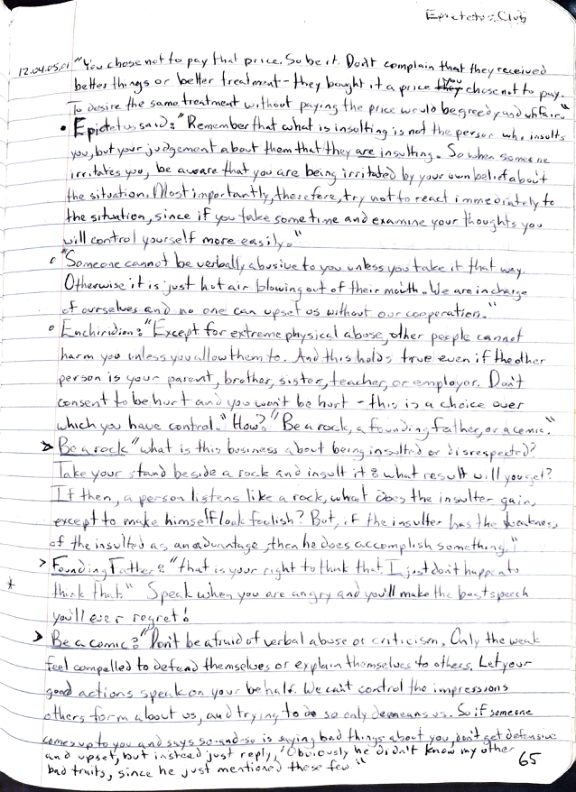 Epictetus Club
12.04.05.01 "You chose not to pay that price. So be it. Don't complain that they received
better things or better treatment - they bought it a price they you chose not to pay.
To desire the same treatment without paying the price would be greedy and unfair."
• Epictetus said: "Remember that what is insulting is not the person who insults
you, but your judgement about them that they are insulting. So when someone
irritates you, be aware that you are being irritated by your own belief about
the situation. Most importantly, therefore, try not to react immediately to
the situation, since if you take some time and examine your thoughts you
will control yourself more easily."
• "Someone cannot be verbally abusive to you unless you take it that way.
Otherwise it is just hot air blowing out of their mouth. We are in charge
of ourselves and no one can upset us without our cooperation."
• Enchiridion: "Except for extreme physical abuse, other people cannot
harm you unless you allow them to. And this holds true even if the other
person is your parent, brother, sister, teacher, or employer. Don't
consent to be hurt and you won't be hurt - this is a choice over
which you have control." How? "Be a rock, a founding father, or a comic."
> Be a rock "what is this business about being insulted or disrespected?
Take your stand beside a rock and insult it & what result will you get?
If then, a person listens like a rock, what does the insulter gain,
except to make himself look foolish? But, if the insulter has the weakness
of the insulted as an advantage, then he does accomplish something."
> Founding Father: "that is your right to think that. I just don't happen to
* think that." Speak when you are angry and you'll make the best speech
you'll ever regret!
> Be a comic: "Don't be afraid of verbal abuse or criticism. Only the weak
feel compelled to defend themselves or explain themselves to others. Let your
good actions speak on your behalf. We can't control the impressions
others form about us, and trying to do so only demeans us. So if someone
comes up to you and says so-and-so is saying bad things about you, don't get defensive
and upset, but instead just reply, "Obviously he didn't know my other
bad traits, since he just mentioned these few"
65